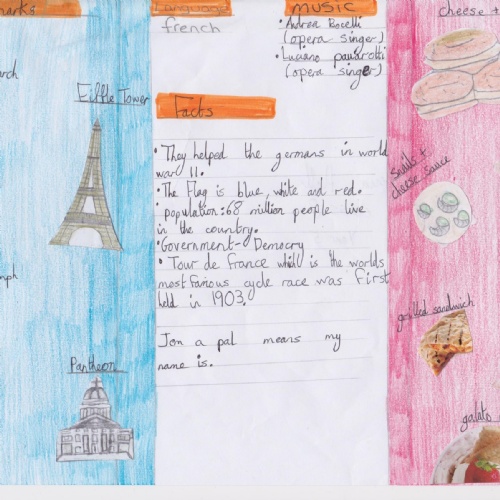 marks
Language
french
music
• Andrea Bocelli
(opera singer)
• Luciano pavarotti
(opera singer)
cheese +
arch
Eiffle Tower
Facts
• They helped the germans in world
war II.
• The Flag is blue, white and red.
• population: 68 million people live
in the country.
• Government - Democry
• Tour de france which is the worlds
most famous cycle race was first
held in 1903.
Jon a pal means my
name is.
snails +
cheese sauce
mph
grilled sandwich
Pantheon
galato